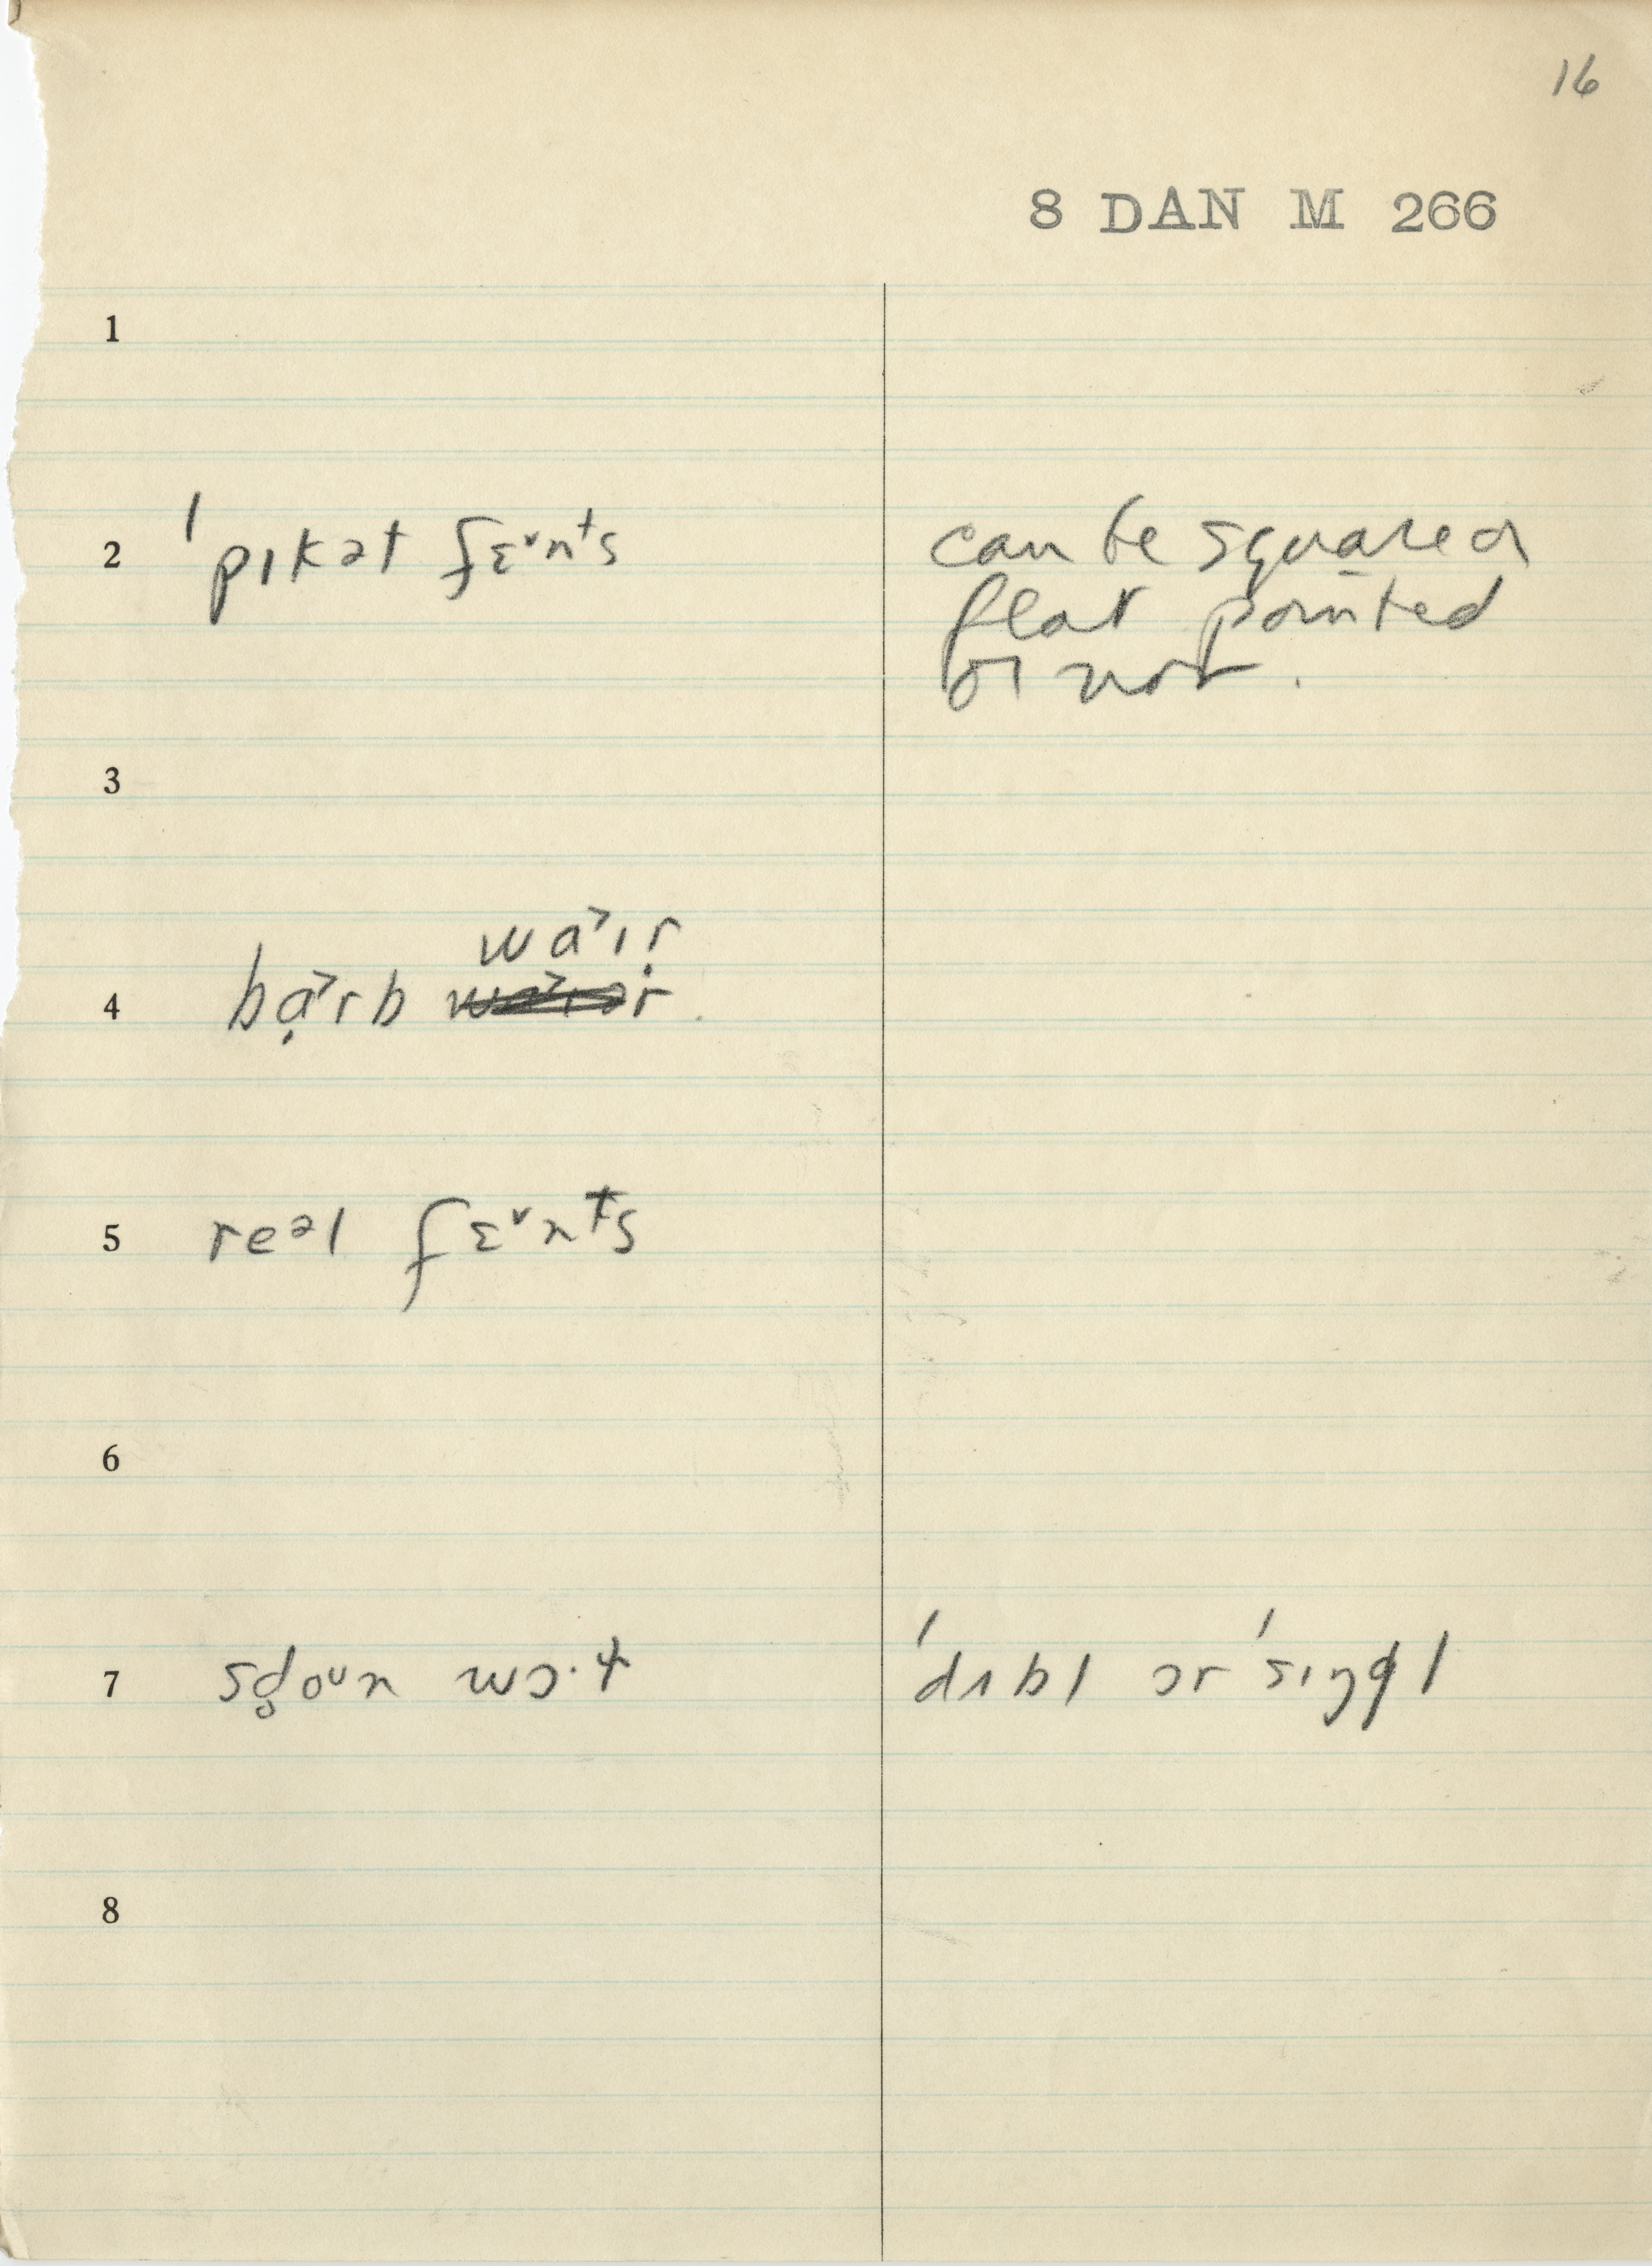 16
8 DAN M 266
1
2 ˈpɪkət fɛ˅nᵗs can be squared or
flat pointed
or not.
3
wa˃ɪr̩
4 bạ˃rb
5 reᵊl fɛ˅nᵗs
6
7 sd̥oᵘn wɔ·ɫ ˈdʌbl ɔr ˈsɪŋgl
8